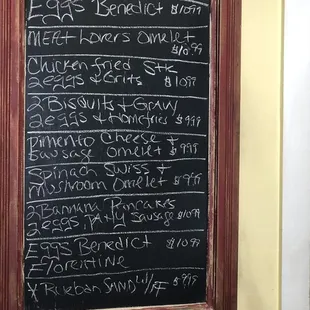 Eggs Benedict $10.99
MEAT Lovers Omelet
$10.99
Chicken fried Stk
2eggs & Grits $10.99
2 Bisquits + Gravy
2eggs & Homefries $9.99
Pimento Cheese +
Sausage Omelet $9.99
Spinach Swiss +
Mushroom Omelet $9.99
2 Bannana Pancakes
2eggs, Patty Sausage $10.99
Eggs Benedict $10.99
Florentine
Rueban SAND w/FF $9.99